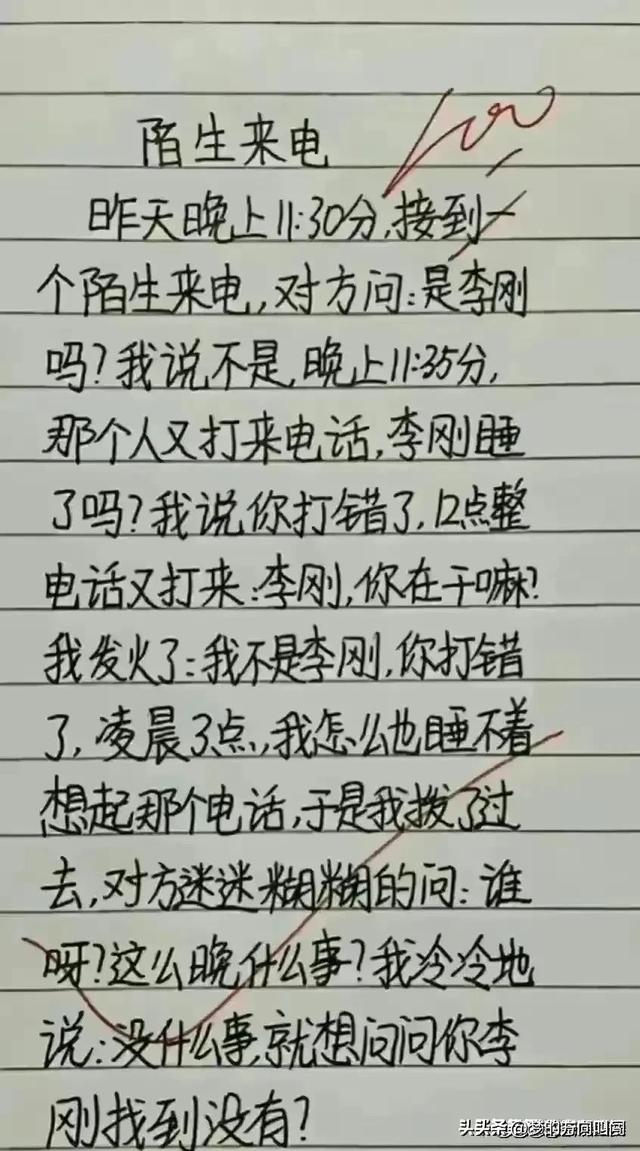 陌生来电
100
昨天晚上11:30分,接到一
个陌生来电,对方问:是李刚
吗?我说不是,晚上11:35分,
那个人又打来电话,李刚睡
了吗?我说你打错了,12点整
电话又打来:李刚,你在干嘛?
我发火了:我不是李刚,你打错
了,凌晨3点,我怎么也睡不着
想起那个电话,于是我拨了过
去,对方迷迷糊糊的问:谁
呀?这么晚什么事?我冷冷地
说:没什么事,就想问问你李
刚找到没有?